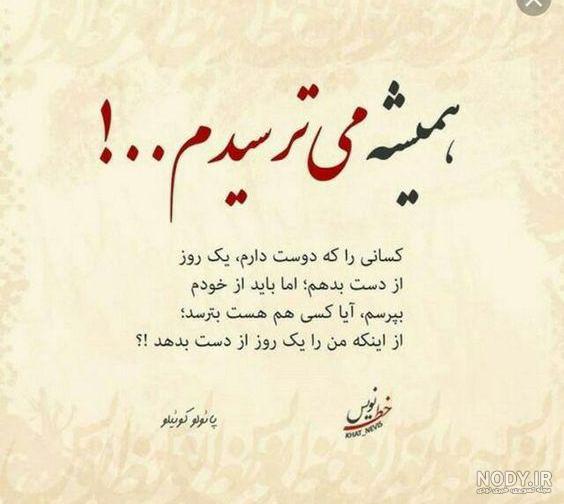 همیشه می ترسیدم...!
کسانی را که دوست دارم، یک روز
از دست بدهم؛ اما باید از خودم
بپرسم، آیا کسی هم هست بترسد؛
از اینکه من را یک روز از دست بدهد !؟
پائولو کوئیلو
خط نویس
KHAT_NEVIS
NODY.IR
مجله تصویری خبری نودی